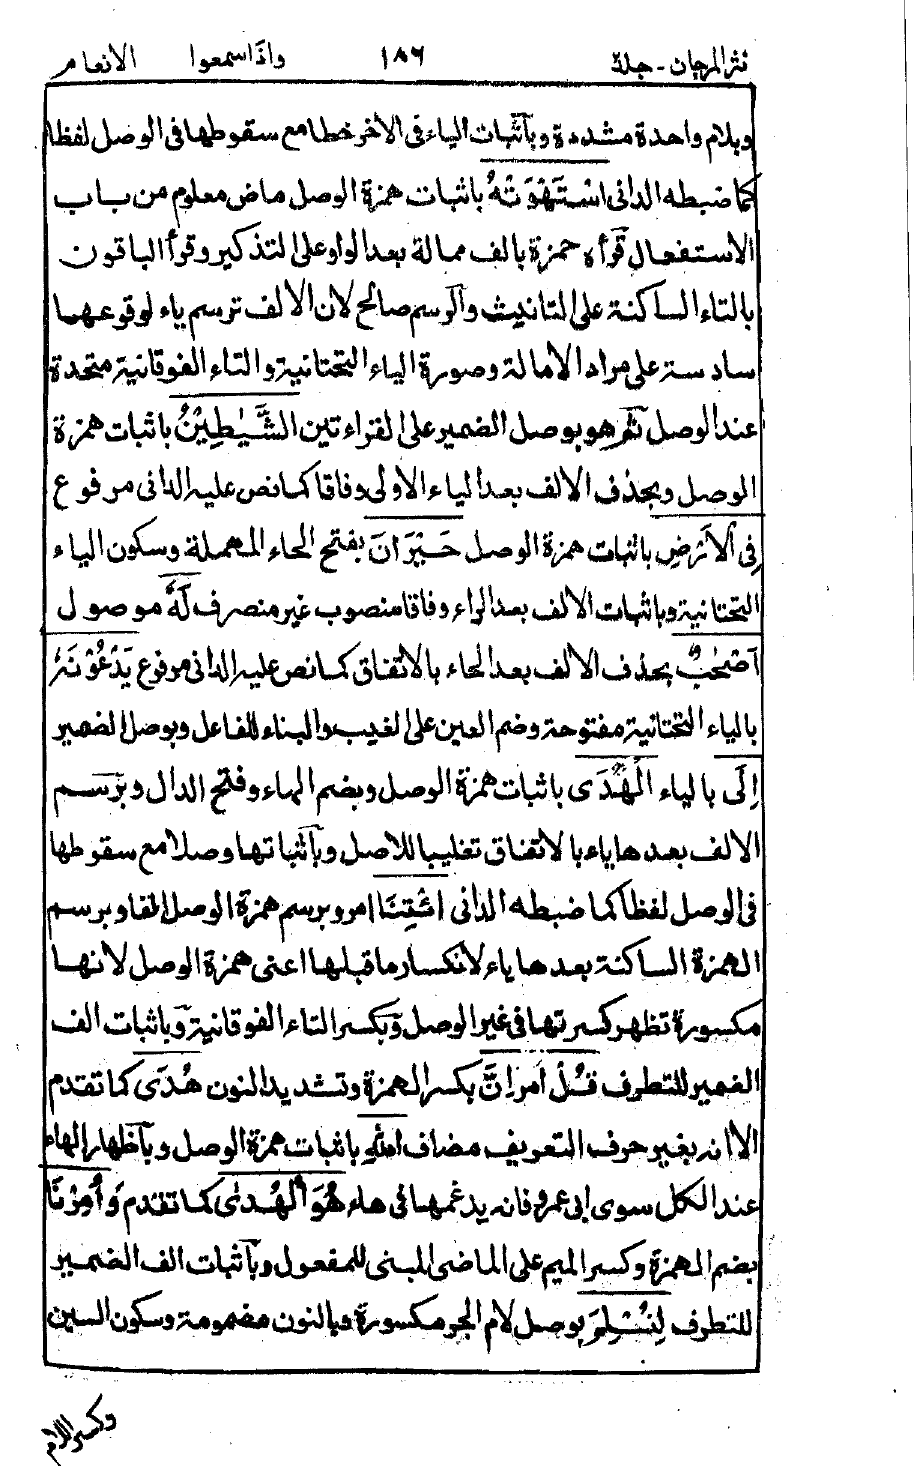 نثر المرجان - جلد ٢ ١٨٦ واذا سمعوا الانعام
وبلام واحدة مشددة وبآثبات الياء فى الآخر خطا مع سقوطها فى الوصل لفظا
كما ضبطه الدانى اسْتَهْوَتْهُ باثبات همزة الوصل ماض معلوم من باب
الاستفعال قرأه حمزة بالف ممالة بعد الواو على التذكير وقرأ الباقون
بالتاء الساكنة على التانيث والرسم صالح لان الالف ترسم ياء لوقوعها
سادسة على مراد الامالة وصورة الياء التحتانية والتاء الفوقانية متحدة
عند الوصل ثم هو بوصل الضمير على القراءتين الشَّيٰطِيْنُ باثبات همزة
الوصل وبحذف الالف بعد الياء الاولى وفاقا كما نص عليه الدانى مرفوع
فِى الْاَرْضِ باثبات همزة الوصل حَيْرَانَ بفتح الحاء المهملة وسكون الياء
التحتانية وباثبات الالف بعد الراء وفاقا منصوب غير منصرف لَهٗ موصول
اَصْحٰبٌ بحذف الالف بعد الحاء بالاتفاق كما نص عليه الدانى مرفوع يَدْعُوْنَهٗ
بالياء التحتانية مفتوحة وضم العين على الغيب والبناء للفاعل وبوصل الضمير
اِلَى بالياء الْهُدَى باثبات همزة الوصل وبضم الهاء وفتح الدال وبرسم
الالف بعدها ياء بالاتفاق تغليبا للاصل وبآثباتها وصلا مع سقوطها
فى الوصل لفظا كما ضبطه الدانى ائْتِنَا امر وبرسم همزة الوصل الفا وبرسم
الهمزة الساكنة بعدها ياء لانكسار ما قبلها اعنى همزة الوصل لانها
مكسورة تظهر كسرتها فى غير الوصل وبكسر التاء الفوقانية وباثبات الف
الضمير للتطرف قُلْ امر اِنَّ بكسر الهمزة وتشديد النون هُدَى كما تقدم
الا انه بغير حرف التعريف مضاف اللّٰهِ باثبات همزة الوصل وبآظهار الهاء
عند الكل سوى ابى عمرو فانه يدغمها فى هاء هُوَ الْهُدٰى كما تقدم وَاُمِرْنَا
بضم الهمزة وكسر الميم على الماضى المبنى للمفعول وبآثبات الف الضمير
للتطرف لِنُسْلِمَ بوصل لام الجر مكسورة وبالنون مضمومة وسكون السين
وكسر اللام